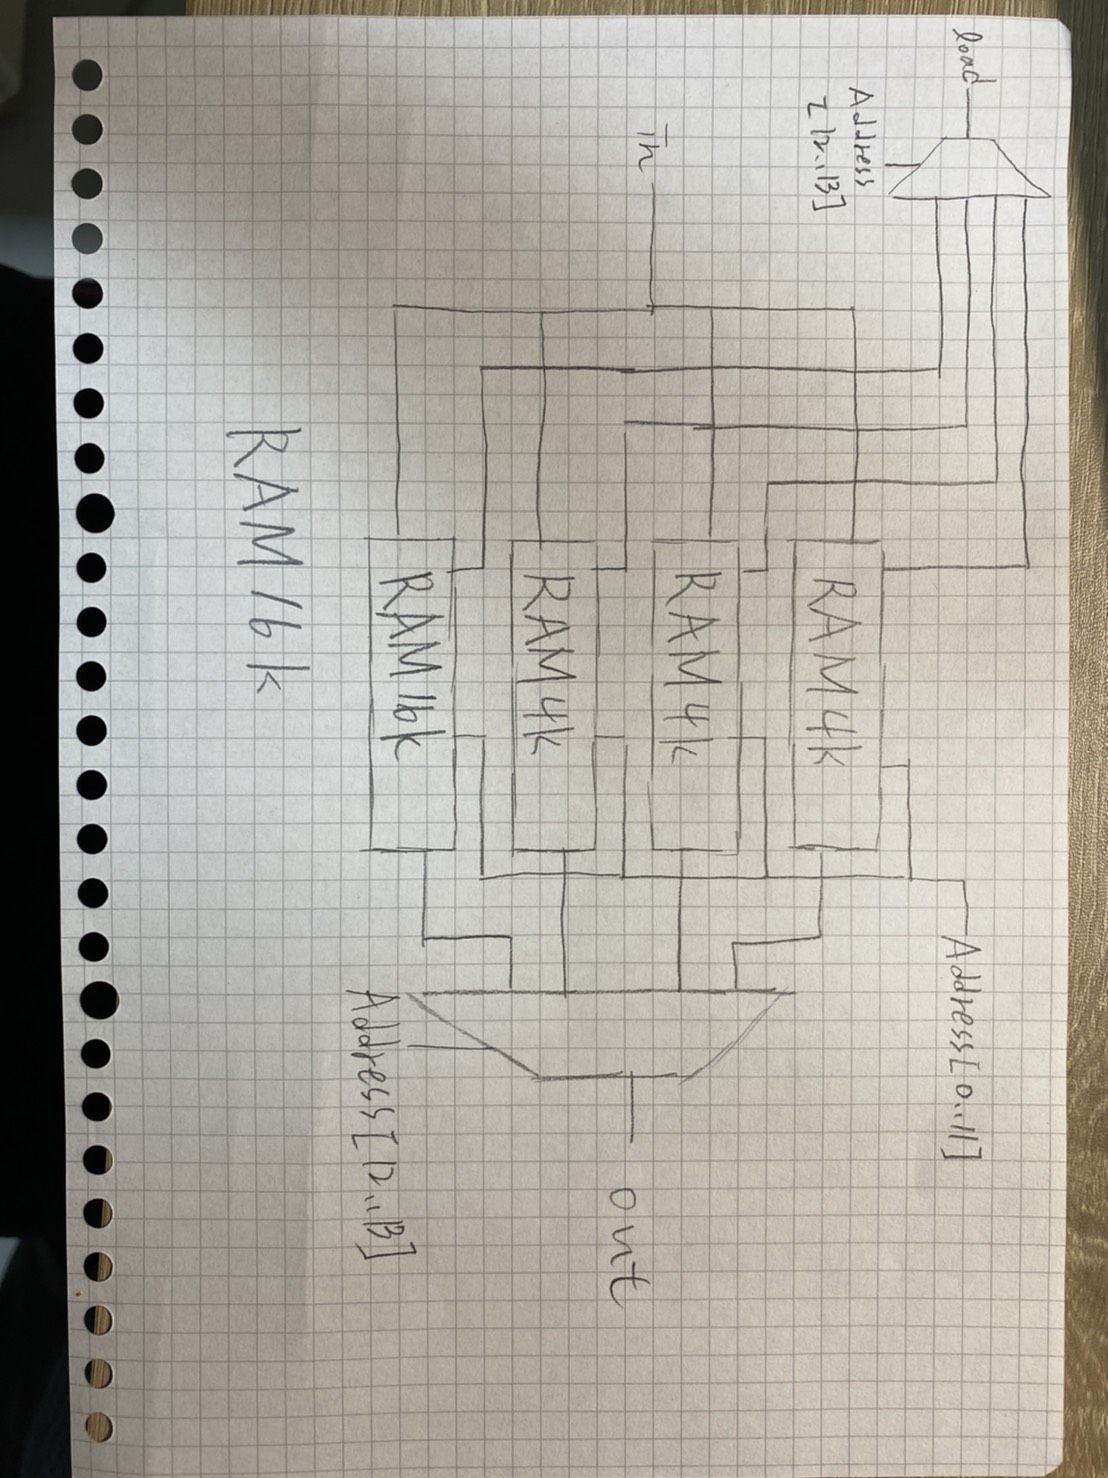 load
Address[0..11]
Address
[12..13]
RAM4k
RAM4k
In
out
RAM4k
RAM16k
Address[12..13]
RAM16k